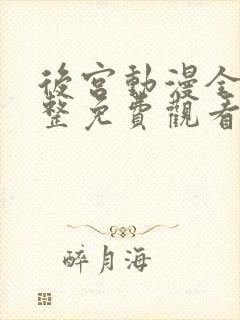 後宮動漫全
整免費觀看
醉月海